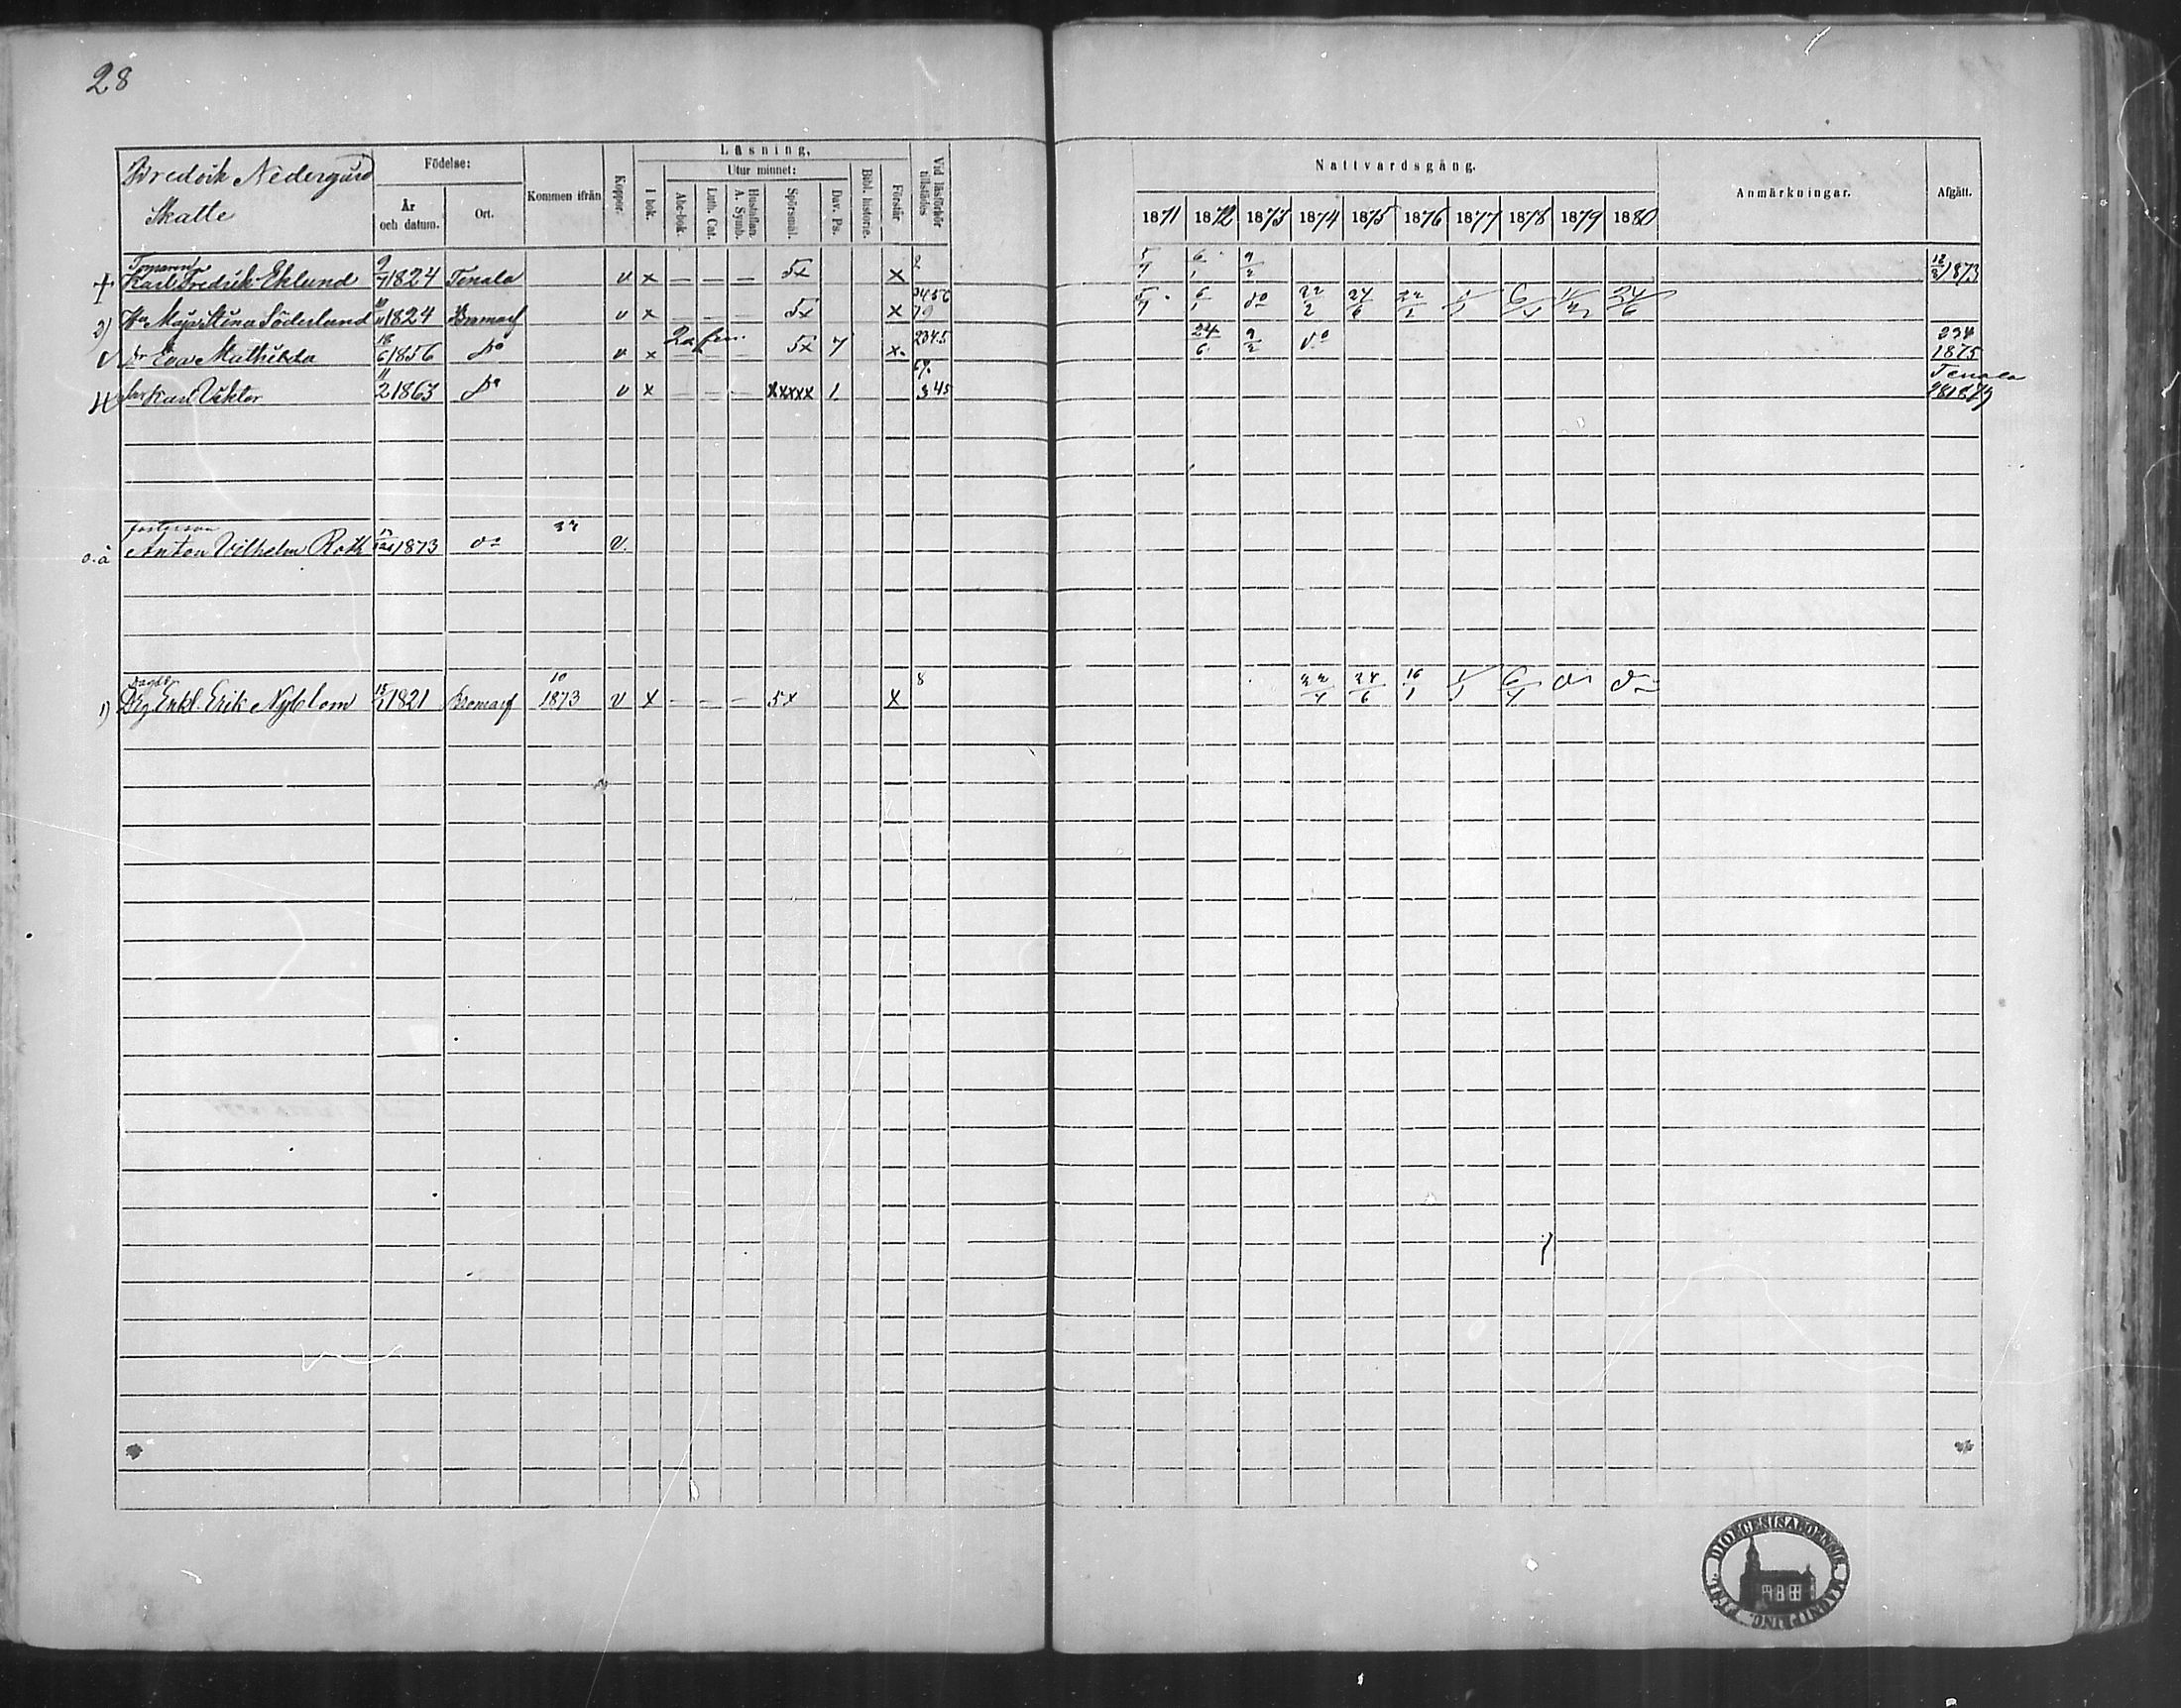 28
Bredvik Nedergård
Skatte
Födelse:
År och datum.
Ort.
Kommen ifrån
Koppor.
Läsning,
I bok.
Utur minnet:
Abc-bok.
Luth. Cat.
Hustaflan. A. Symb.
Spörsmål.
Dav. Ps.
Bibl. historie.
Förstår.
Vid läsförhör tillstädes
Nattvardsgång.
1871 1872 1873 1874 1875 1876 1877 1878 1879 1880
Anmärkningar.
Afgått.
† Karl Fredrik Eklund 9/7 1824 Tenala v x – – – 5x x 2 6/1 9/2 12/2 1873
2) Hu Maja Stina Söderlund 1824 Bromarf v x – – – 5x x 3456 79 6/1 do 22/2 24/6 22/2 24/6
dr Eva Mathilda 18/6 1856 do v x 5x 7 x 2345 24/6 9/2 do 234 1875
67.
Tenala
Karl Viktor 11/2 1863 do v x – – – xxxxx 1 345 1879
o.ä fosterson
Anton Vilhelm Roth 1873 do v.
1) Enkl. Erik Nyblom 1821 Bromarf 10 1873 v x – – – 5x x 8 22/4 24/6 16/1 1/1 6/4 do do
DIOECESIS ABOENSIS
MAGNI PRINC. FINL.